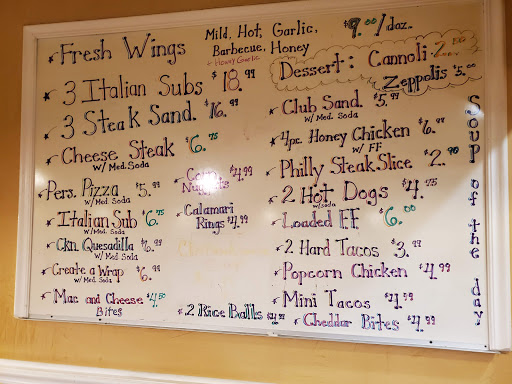 Fresh Wings
Mild, Hot, Garlic,
Barbecue, Honey
+ Honey Garlic
$9.00/doz.
Dessert: Cannoli 2.
Zeppolis $5.00
3 Italian Subs $18.99
3 Steak Sand. $16.99
Cheese Steak $6.75
w/Med.Soda
Pers. Pizza $5.99
w/Med. Soda
Italian Sub $6.75
w/Med Soda
Ckn. Quesadilla $6.99
w/ Med. Soda
Create a Wrap $6.99
w/ Med Soda
Mac and Cheese $4.50
Bites
Nuggets $4.99
Calamari
Rings $4.99
2 Rice Balls
Club Sand. $5.99
w/ Med Soda
4pc. Honey Chicken $6.99
w/ FF
Philly Steak Slice $2.90
2 Hot Dogs $4.75
w/soda
Loaded FF $6.00
2 Hard Tacos $3.99
Popcorn Chicken $4.99
Mini Tacos $4.99
Cheddar Bites $4.99
Soup of the day